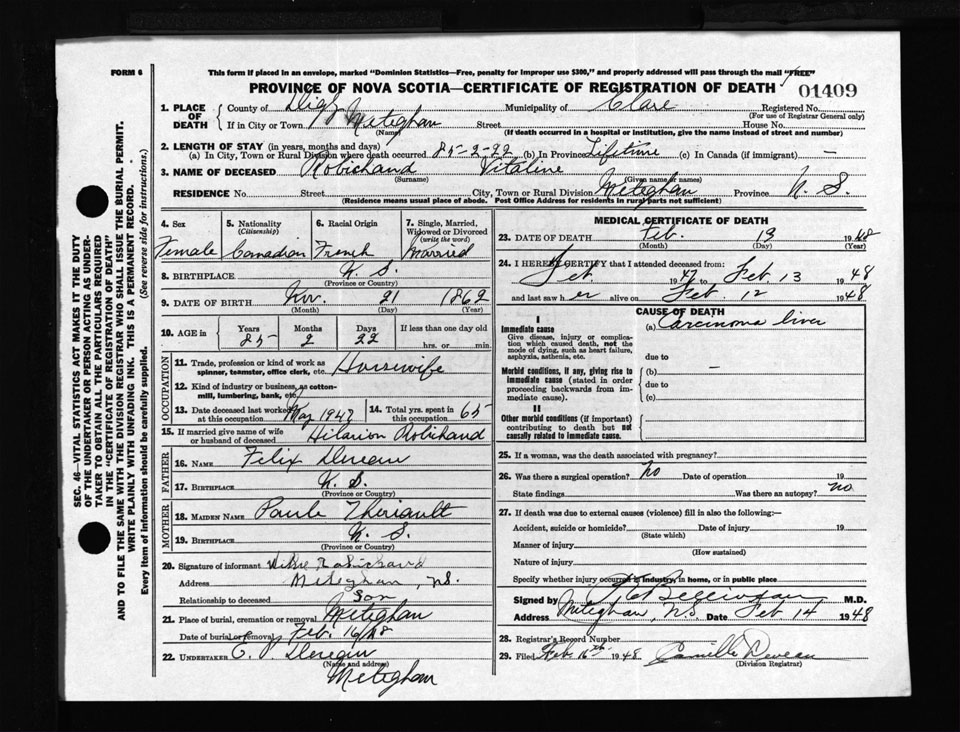 FORM 6
This form if placed in an envelope, marked "Dominion Statistics—Free, penalty for improper use $300," and properly addressed will pass through the mail "FREE"
PROVINCE OF NOVA SCOTIA—CERTIFICATE OF REGISTRATION OF DEATH
01409
1. PLACE OF DEATH County of Digby Municipality of Clare Registered No.
(For use of Registrar General only)
If in City or Town Meteghan Street House No.
(Name) (If death occurred in a hospital or institution, give the name instead of street and number)
2. LENGTH OF STAY (in years, months and days)
(a) In City, Town or Rural Division where death occurred 85-2-22 (b) In Province Lifetime (c) In Canada (if immigrant) —
3. NAME OF DECEASED Robichaud Vitaline
(Surname) (Given name or names)
RESIDENCE No. Street City, Town or Rural Division Meteghan Province N. S.
(Residence means usual place of abode. Post Office Address for residents in rural parts not sufficient)
4. Sex Female
5. Nationality (Citizenship) Canadian
6. Racial Origin French
7. Single, Married, Widowed or Divorced (write the word) Married
8. BIRTHPLACE N. S.
(Province or Country)
9. DATE OF BIRTH Nov. 21 1862
(Month) (Day) (Year)
10. AGE in Years 85 Months 2 Days 22 If less than one day old
hrs. or min.
OCCUPATION
11. Trade, profession or kind of work as spinner, teamster, office clerk, etc. Housewife
12. Kind of industry or business, as cotton-mill, lumbering, bank, etc.
13. Date deceased last worked at this occupation May 1947
14. Total yrs. spent in this occupation 65
15. If married give name of wife or husband of deceased Hilarion Robichaud
FATHER
16. NAME Felix
17. BIRTHPLACE N. S.
(Province or Country)
MOTHER
18. MAIDEN NAME Paule Theriault
19. BIRTHPLACE N. S.
(Province or Country)
20. Signature of informant Robichaud
Address Meteghan, N.S.
Relationship to deceased Son
21. Place of burial, cremation or removal Meteghan
Date of burial or removal Feb. 16/48
22. UNDERTAKER E.
(Name and address)
Meteghan
MEDICAL CERTIFICATE OF DEATH
23. DATE OF DEATH Feb. 13 1948
(Month) (Day) (Year)
24. I HEREBY CERTIFY that I attended deceased from:
1947 Feb 13 1948
and last saw her alive on Feb. 12 1948
CAUSE OF DEATH
I
Immediate cause
Give disease, injury or complication which caused death, not the mode of dying, such as heart failure, asphyxia, asthenia, etc.
(a) Carcinoma liver
due to
Morbid conditions, if any, giving rise to immediate cause (stated in order proceeding backwards from immediate cause).
(b) —
due to
(c)
II
Other morbid conditions (if important) contributing to death but not causally related to immediate cause.
25. If a woman, was the death associated with pregnancy?
26. Was there a surgical operation? No Date of operation 19
State findings Was there an autopsy? no
27. If death was due to external causes (violence) fill in also the following:—
Accident, suicide or homicide? Date of injury 19
(State which)
Manner of injury
(How sustained)
Nature of injury
Specify whether injury occurred in industry, in home, or in public place
Signed by M.D.
Address Meteghan, N.S. Date Feb 14 1948
28. Registrar's Record Number
29. Filed Feb. 16th 1948 Camille Deveau
(Division Registrar)
SEC. 46—VITAL STATISTICS ACT MAKES IT THE DUTY
OF THE UNDERTAKER OR PERSON ACTING AS UNDER-
TAKER TO OBTAIN ALL THE PARTICULARS REQUIRED
IN THE "CERTIFICATE OF REGISTRATION OF DEATH"
AND TO FILE THE SAME WITH THE DIVISION REGISTRAR WHO SHALL ISSUE THE BURIAL PERMIT.
WRITE PLAINLY WITH UNFADING INK. THIS IS A PERMANENT RECORD.
Every item of information should be carefully supplied. (See reverse side for instructions.)